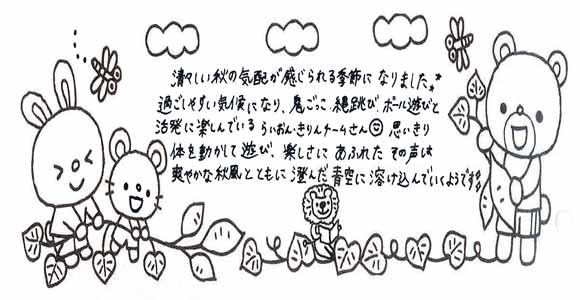 清々しい秋の気配が感じられる季節になりました。
過ごしやすい気候になり、鬼ごっこ、縄跳び、ボール遊びと
活発に楽しんでいる らいおん・きりんチームさん☺ 思いきり
体を動かして遊び、楽しさにあふれた その声は
爽やかな秋風とともに 澄んだ青空に溶け込んでいくようです